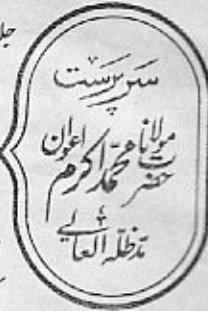 سرپرست
حضرت مولانا محمد اکرم اعوان
مدظلہ العالی
جلد